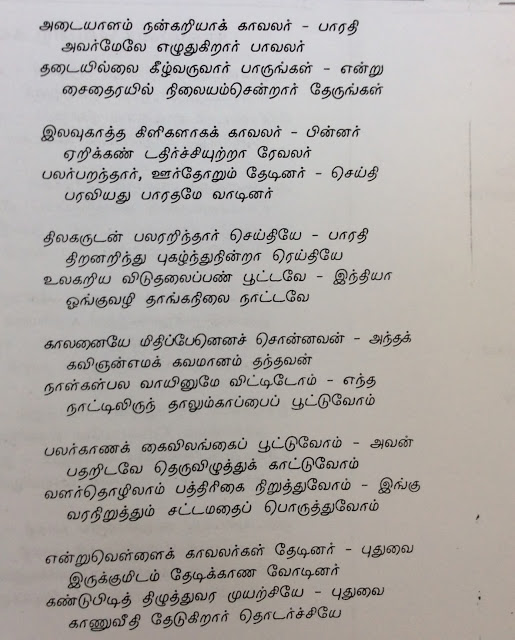 அடையாளம் நன்கறியாக் காவலர் – பாரதி
அவர்மேலே எழுதுகிறார் பாவலர்
தடையில்லை கீழ்வருவார் பாருங்கள் – என்று
சைதைரயில் நிலையம்சென்றார் தேருங்கள்
இலவுகாத்த கிளிகளாகக் காவலர் – பின்னர்
ஏறிக்கண் டதிர்ச்சியுற்றா ரேவலர்
பலர்பறந்தார், ஊர்தோறும் தேடினர் – செய்தி
பரவியது பாரதமே வாடினர்
திலகருடன் பலரறிந்தார் செய்தியே – பாரதி
திறனறிந்து புகழ்ந்துநின்றா ரெய்தியே
உலகறிய விடுதலைப்பண் பூட்டவே – இந்தியா
ஓங்குவழி தாங்கநிலை நாட்டவே
காலனையே மிதிப்பேனெனச் சொன்னவன் – அந்தக்
கவிஞன்எமக் கவமானம் தந்தவன்
நாள்கள்பல வாயினுமே விட்டிடோம் – எந்த
நாட்டிலிருந் தாலும்காப்பைப் பூட்டுவோம்
பலர்காணக் கைவிலங்கைப் பூட்டுவோம் – அவன்
பதறிடவே தெருவிழுத்துக் காட்டுவோம்
வளர்தொழிலாம் பத்திரிகை நிறுத்துவோம் – இங்கு
வரநிறுத்தும் சட்டமதைப் பொருத்துவோம்
என்றுவெள்ளைக் காவலர்கள் தேடினர் – புதுவை
இருக்குமிடம் தேடிக்காண வோடினர்
கண்டுபிடித் திழுத்துவர முயற்சியே – புதுவை
காணுவீதி தேடுகிறார் தொடர்ச்சியே